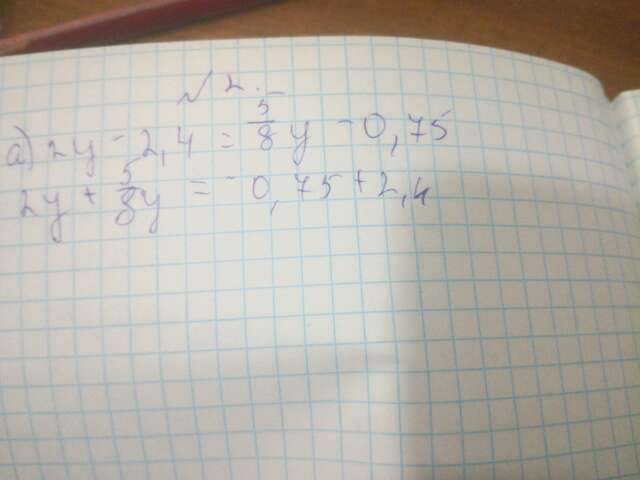 № 2.
а) 2y - 2,4 = 5/8 y - 0,75
2y + 5/8 y = - 0,75 + 2,4